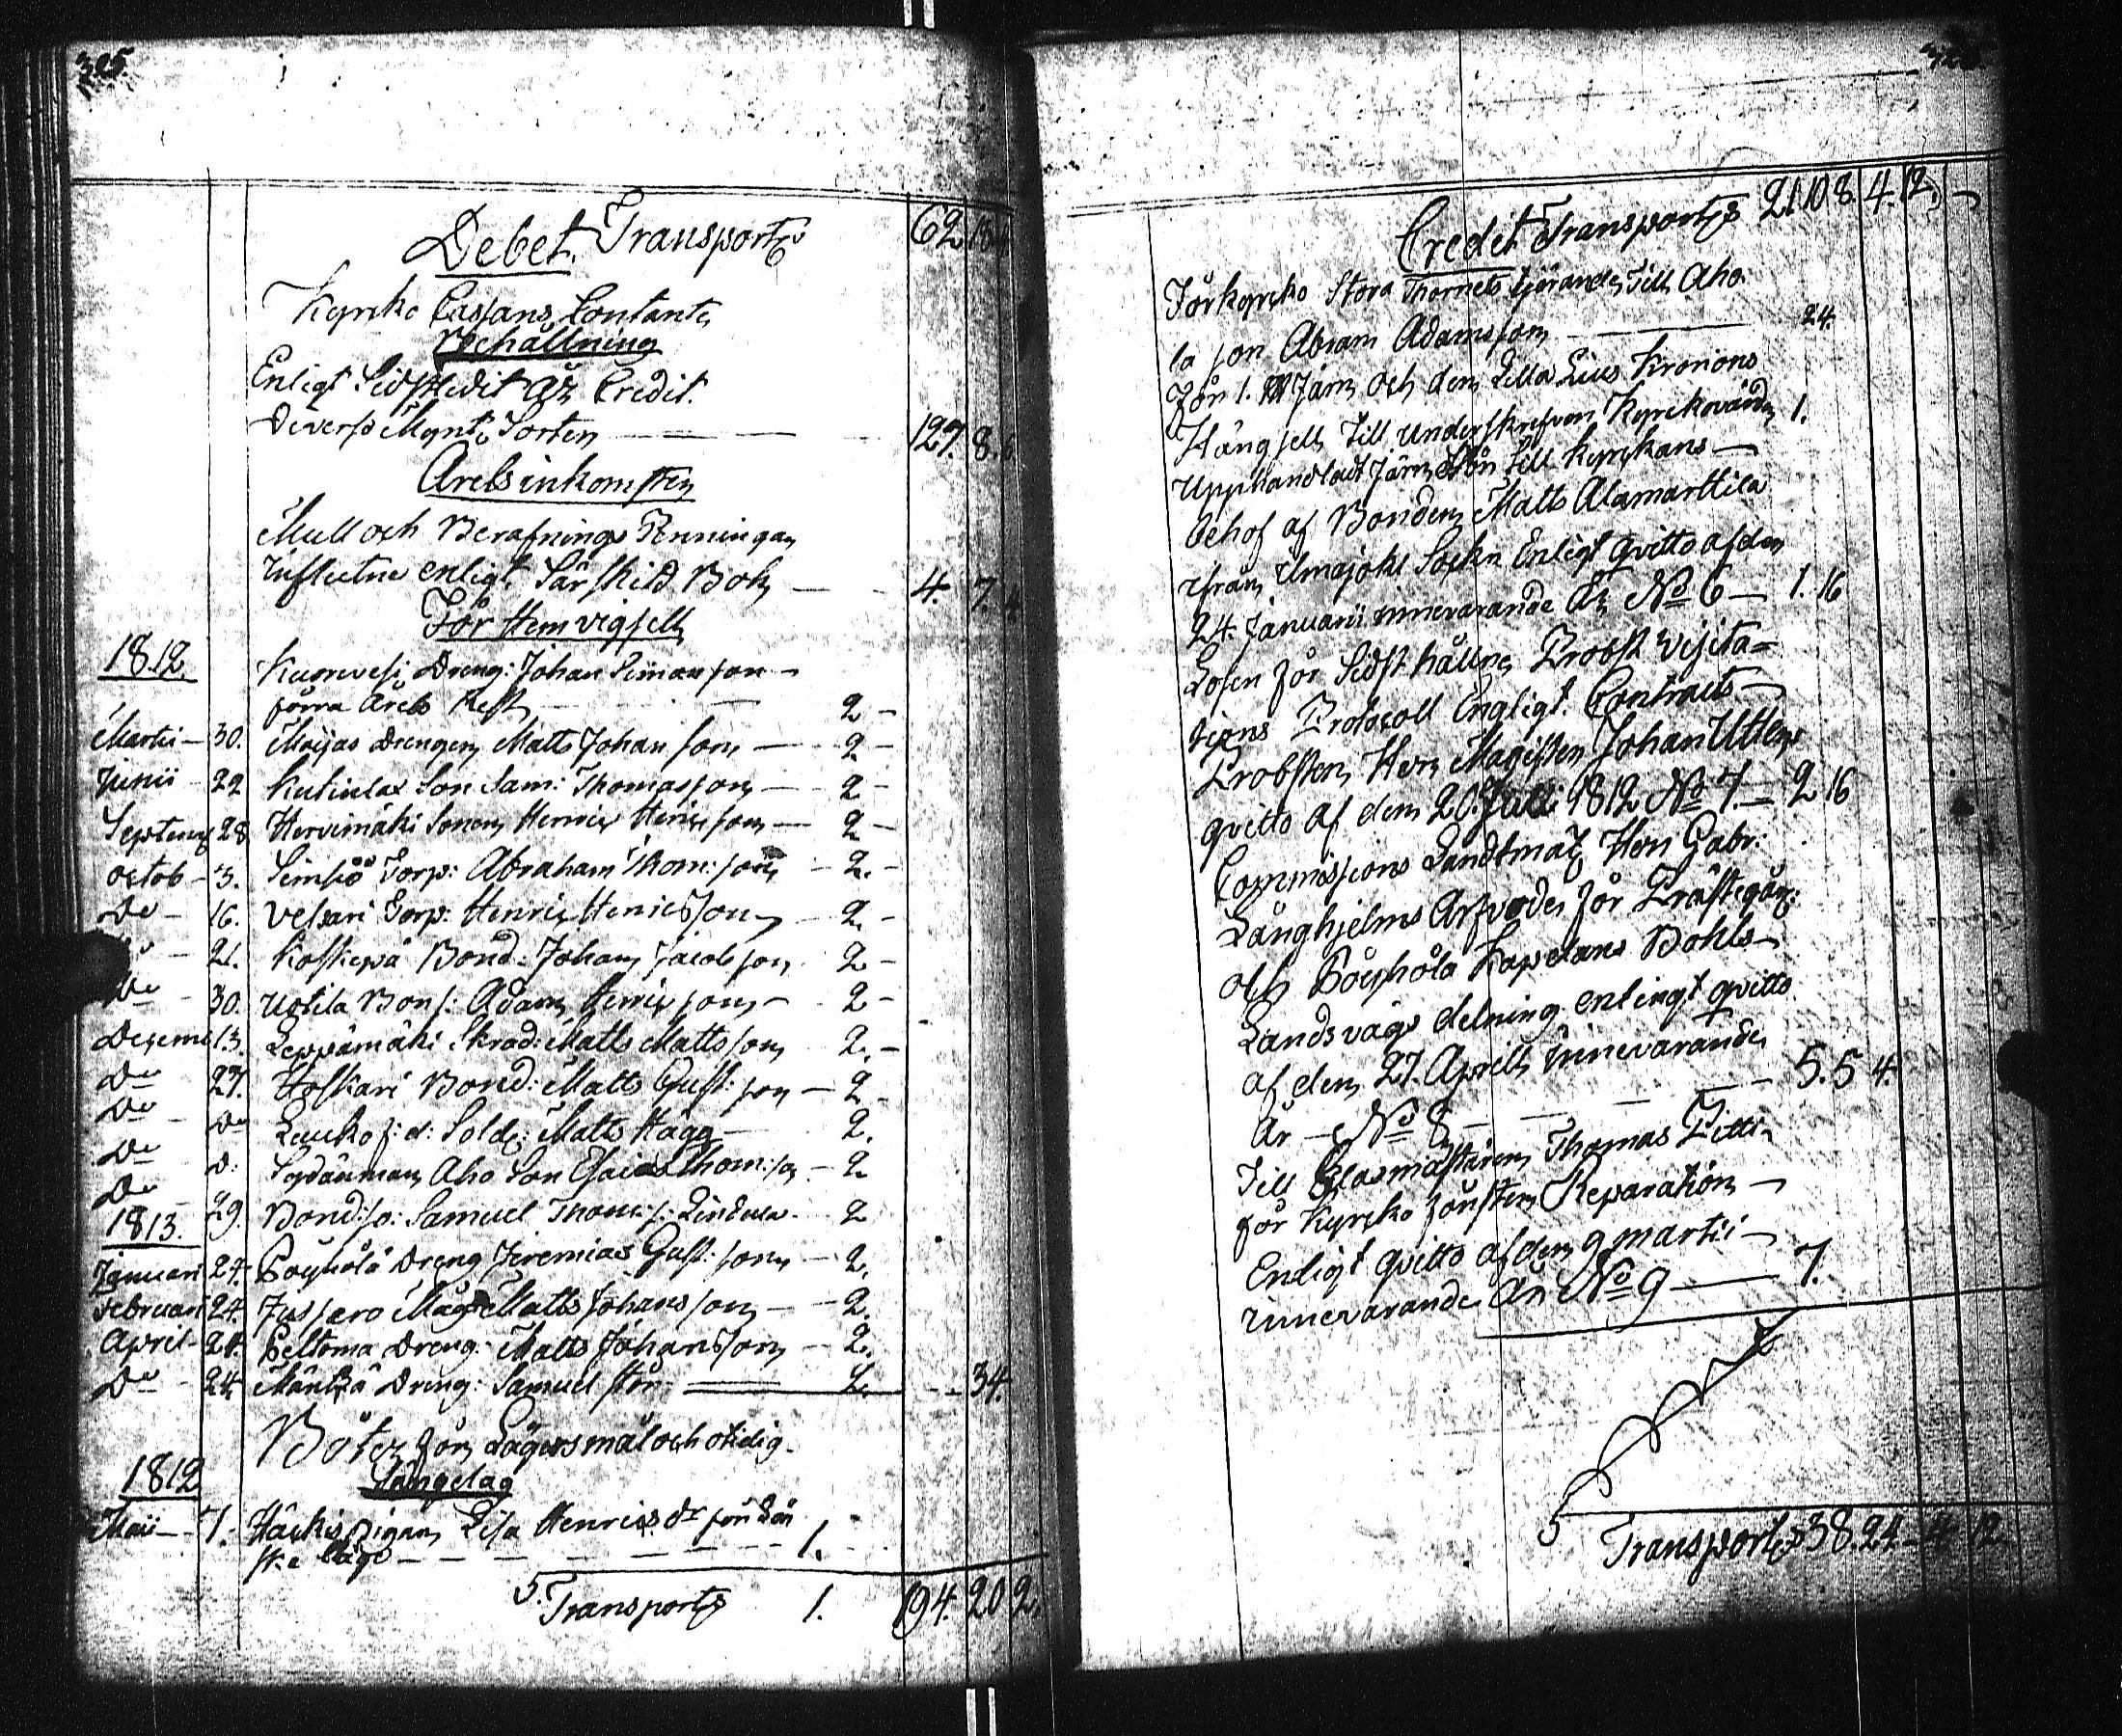 325.
Debet Transport 62
Kyrcko Cassans Contanta
Behållning
Enligt Sidsledit År Credit.
Diverse Mynt Sorter — 127. 8.
Årets inkomster
Mull och Berafnings Penningar
influtne enligt Särskild Bok — 4. 7. 4
För Hemvigsell
1812.
Kuorevesi Dreng: Johan Simonsson
förra Årets Rest — 2 -
Martii — 30. Maijas Drengen Matts Johansson — 2 -
Junii — 22 Kutiulax Son Sam: Thomasson — 2 -
Septemb 28 Hervimäki Sonen Henric Henr:sson — 2 -
octob — 3. Simsiö Torp: Abraham Thom:son — 2. -
Do — 16. Velsari Torp: Henric Henricsson — 2 -
— 21. Koskepä Bond: Johan Jacobson 2 -
Do — 30. Uotila Bons: Adam Henricsson — 2 -
Decemb 13. Leppämäki Skrad: Matts Mattsson 2. -
Do 27. Hoskari Bond: Matts Gust:son — 2 -
Do — Do Sold: Matts Hägg — 2.
Do D: Aho Son Esaias Thom:son — 2
Do 29. Bond:so: Samuel Thom:s: Lindula — 2
1813.
Januari 24. Pouhola Dreng Jeremias Gust:son — 2.
Februari 24. Jussero Måg Matts Johansson — 2.
April — 24. Peltoma Dreng: Matts Johansson — 2.
Do — 24. Mäntkä Dreng: Samuel Stör: — 2. — 34.
Böter för Lägersmål och otidig
Sängelag
1812
Maii — 7. Häckis Pigan Lisa Henricsdr för Lön
ske läge — 1.
5. Transport 1. 194. 20 2.
Credit Transport 21. 10 8. 4. 12. -
För kyrcko Stora Thornets tjörande Till Aho
la son Abram Adamsson — 24.
För 1. järn och den Lilla Lius Kronons
Hängsell Till underskrefven Kyrckovärd 1.
Upphandladt Järn till Kyrckans —
behof af Bonden Matts Alamarttila
ifrån Ilmajoki Sockn Enligt qvitto af den
24. Januarii innevarande År No 6 — 1. 16
Losen för Sidst hållne Probst Visita=
tions Protocoll Englegt. Contracts —
Probsten Herr Magister Johan
qvitto af dem 20. Julii 1812 No 7. — 2 16
Commissions Landtmät Herr Gabr:
Långhjelms Arfvode för Prästegårds
och Pouhola Kapelans Bohls
Landsvägs delning enlingt qvitto
af den 27. Aprill innevarande
År — No 8 — 5. 5 4.
Till Glasmästaren Thomas Fitti
för Kyrcko fönsters Reparation —
Enligt qvitto af den 9 martii —
innevarande År No 9 — 7.
5 Transport 38. 24 — 4 12.